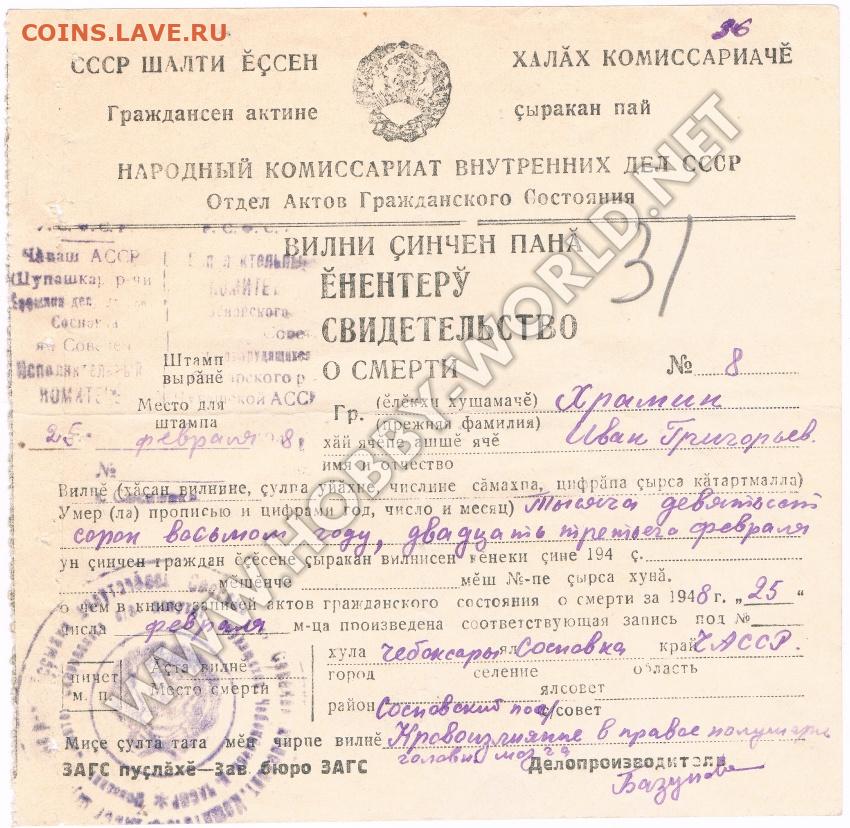 COINS.LAVE.RU
36
СССР ШАЛТИ ĔҪСЕН ХАЛĂХ КОМИССАРИАЧĔ
Граждансен актине ҫыракан пай
НАРОДНЫЙ КОМИССАРИАТ ВНУТРЕННИХ ДЕЛ СССР
Отдел Актов Гражданского Состояния
31
ВИЛНИ ҪИНЧЕН ПАНĂ
ĔНЕНТЕРӲ
СВИДЕТЕЛЬСТВО
О СМЕРТИ № 8
Чăваш АССР
Шупашкар
Исполнительный
КОМИТЕТ
КОМИТЕТ
Штамп
вырăнĕ
Место для
штампа
25 февраля 8
№
Гр. (ĕлĕкхи хушамачĕ) Храмин
(прежняя фамилия)
хăй ячĕпе ашшĕ ячĕ Иван Григорьев.
имя и отчество
Вилнĕ (хăҫан вилнине, ҫулпа уйăхне числине сăмахпа, цифрăпа ҫырса кăтартмалла)
Умер (ла) прописью и цифрами год, число и месяц) Тысяча девятьсот
сорок восьмом году, двадцать третьего февраля
ун ҫинчен граждан ĕҫĕсене ҫыракан вилнисен кĕнеки ҫине 194 ҫ.
мĕшĕнче мĕш №-пе ҫырса хунă.
о чем в книге записей актов гражданского состояния о смерти за 1948 г. „25“
числа февраля м-ца произведена соответствующая запись под №
пичет
м. п.
Аҫта вилнĕ
Место смерти
хула Чебоксары ял Сосновка край ЧАССР.
город селение область
ялсовет
район Сосновский пос/совет
Миҫе ҫулта тата мĕн чирпе вилнĕ Кровоизлияние в правое полушарие
головн мозга
ЗАГС пуҫлăхĕ—Зав. бюро ЗАГС Делопроизводитель
Базунова
WWW.HOBBY-WORLD.NET